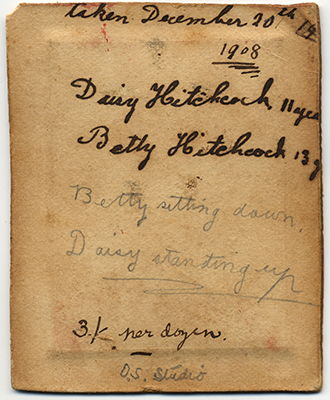 taken December 20th
1908
Daisy Hitchcock, 11 yea
Betty Hitchcock 13 y
Betty sitting down.
Daisy standing up
3/- per dozen.
O.S. Studio